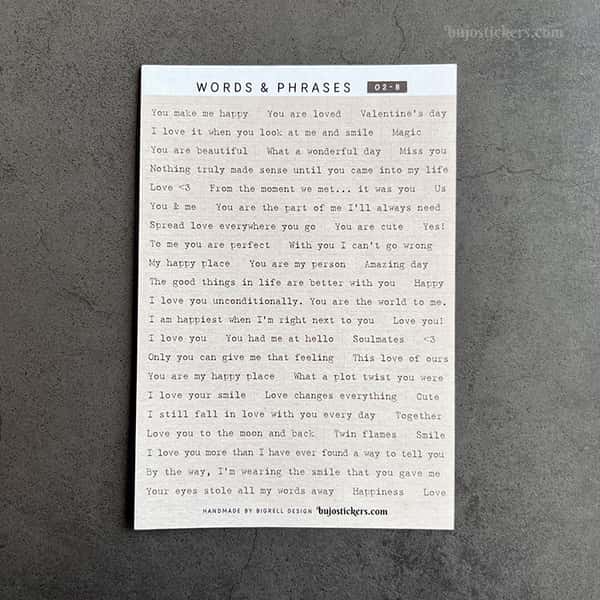 bujostickers.com
WORDS & PHRASES 02-B
You make me happy You are loved Valentine's day
I love it when you look at me and smile Magic
You are beautiful What a wonderful day Miss you
Nothing truly made sense until you came into my life
Love <3 From the moment we met... it was you Us
You & me You are the part of me I'll always need
Spread love everywhere you go You are cute Yes!
To me you are perfect With you I can't go wrong
My happy place You are my person Amazing day
The good things in life are better with you Happy
I love you unconditionally. You are the world to me.
I am happiest when I'm right next to you Love you!
I love you You had me at hello Soulmates <3
Only you can give me that feeling This love of ours
You are my happy place What a plot twist you were
I love your smile Love changes everything Cute
I still fall in love with you every day Together
Love you to the moon and back Twin flames Smile
I love you more than I have ever found a way to tell you
By the way, I'm wearing the smile that you gave me
Your eyes stole all my words away Happiness Love
HANDMADE BY BIGRELL DESIGN bujostickers.com